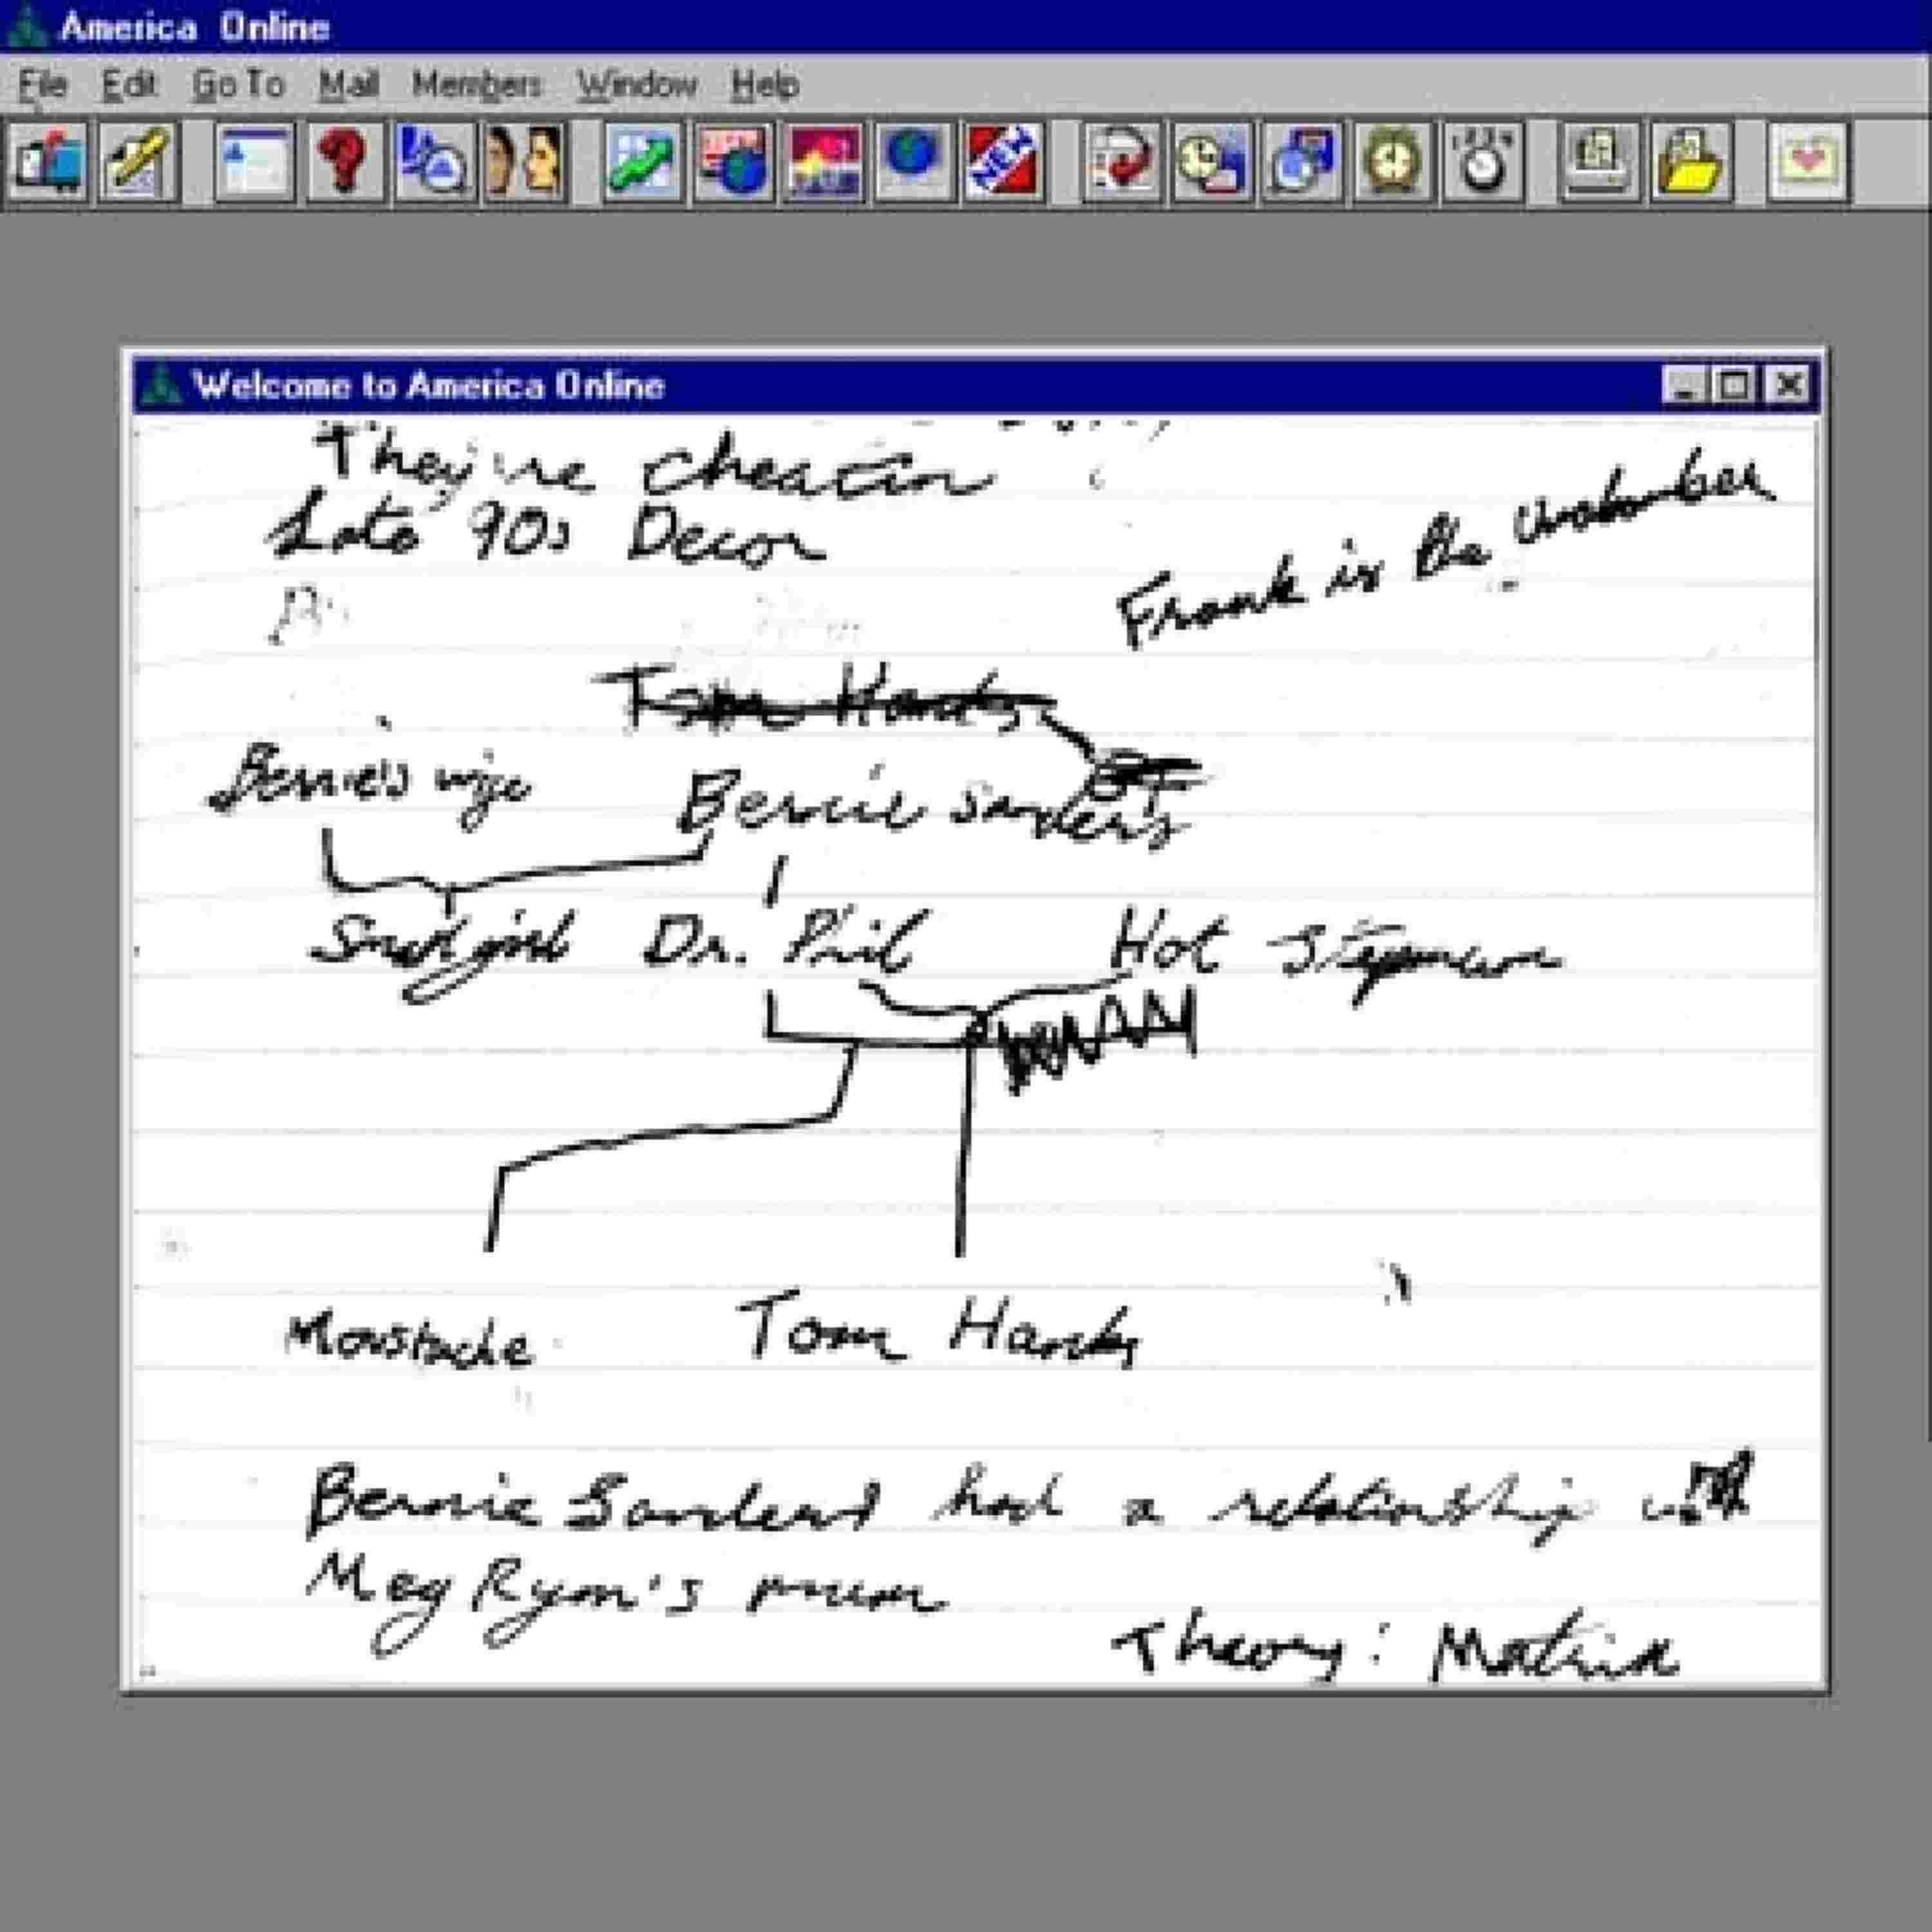 America Online
File Edit Go To Mail Members Window Help
NEW
Welcome to America Online
They're cheatin
Late 90s Decor
Frank is the unabomber
Tom Hanks
Bernie's wife Bernie Sanders
Dr. Phil Hot Stepmom
Moustache Tom Hanks
Bernie Sanders had a relationship with
Meg Ryan's mum
Theory: Matrix